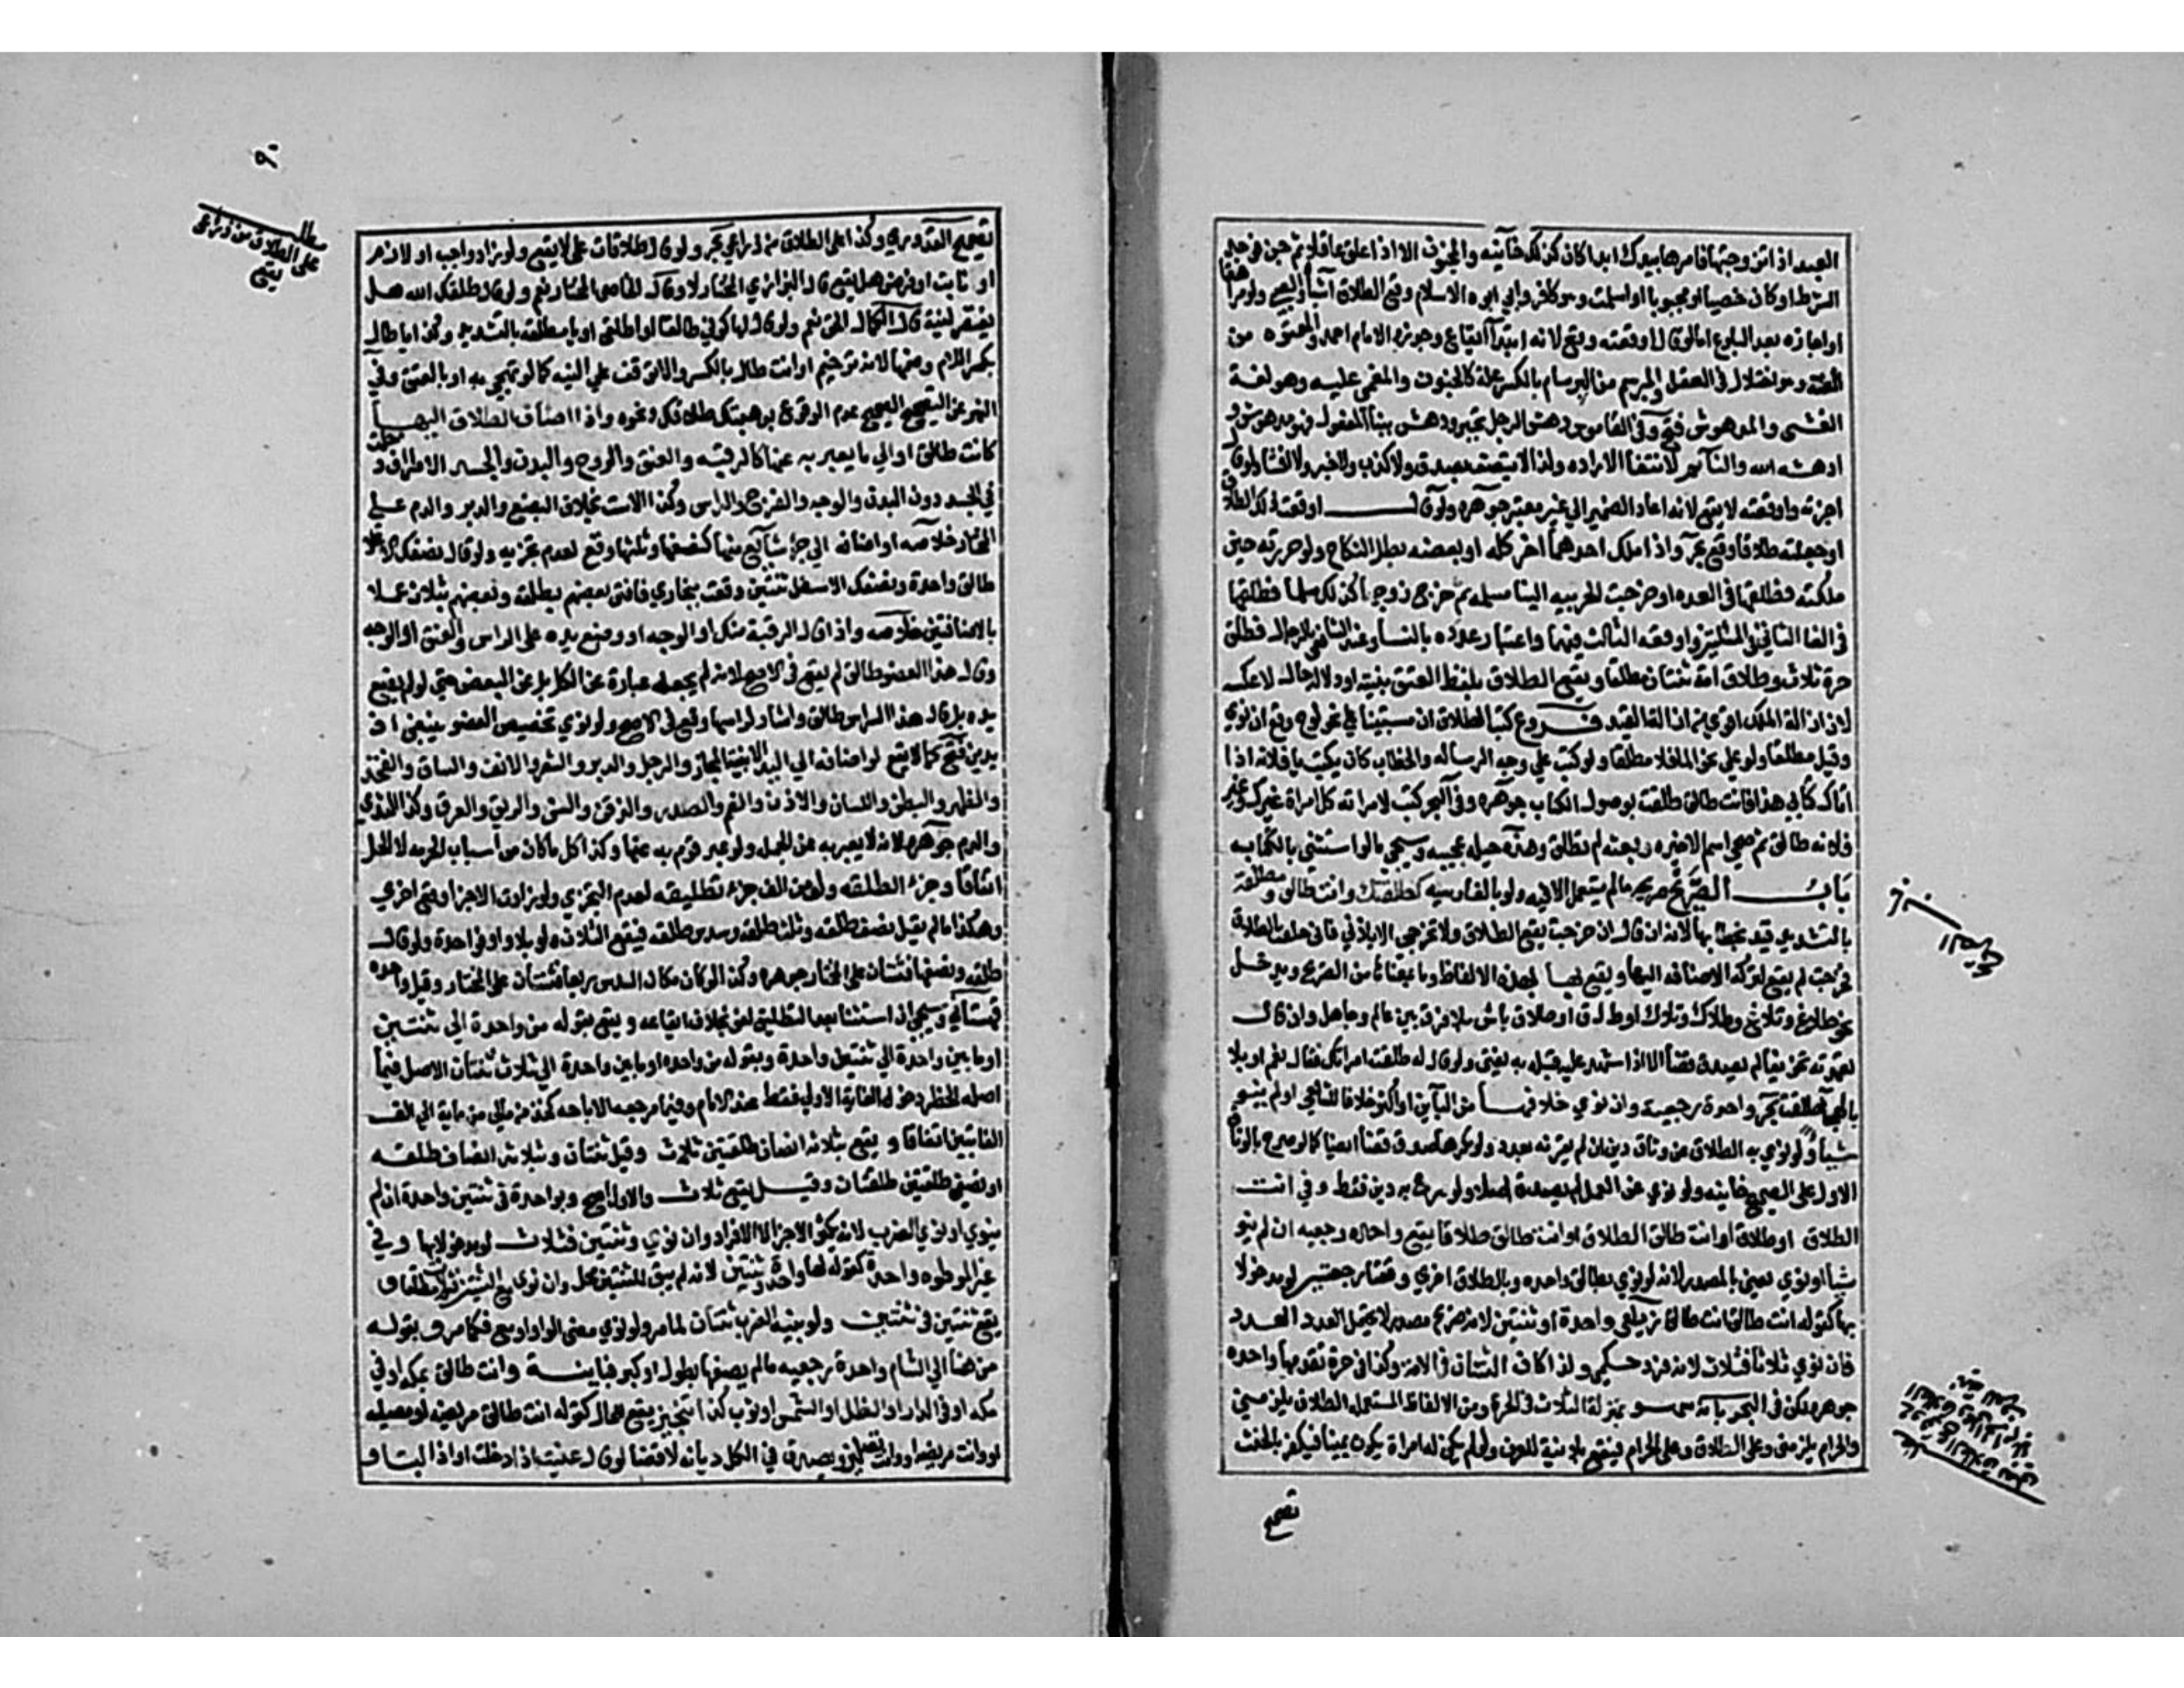 العبد اذا تزوجتها فامرها بيدك ابدا كان كذلك خانيه والمجنون الا اذا علق عاقلا ثم جن فوجد
الشرط او كان خصيا او مجبوبا او اسلمت وهو كافر وابي ابوه الاسلام وقع الطلاق اشباه والصبي ولو مراهقا
او اجازه بعد البلوغ اما لو قال اوقعته وقع لانه ابتدا ايقاع وجوزه الامام احمد والمعتوه من
العته وهو اختلال في العقل والمبرسم من البرسام بالكسر علة كالجنون والمغمي عليه وهو لغة
الغشي والمدهوش فتح وفي القاموس دهش الرجل تحير ودهش ببنا المفعول فهو مدهوش و
ادهشه الله والنائم لانتفا الاراده ولذا لا يتصف بصدق ولا كذب ولا خبر ولا انشا ولو قال
اجزته او اوقعته لا يقع لانه اعاد الضمير الي غير معتبر جوهره ولو قال اوقعت ذلك الطلاق
او جعلته طلاقا وقع بحر واذا ملك احدهما اخر كله او بعضه بطل النكاح ولو حررته حين
ملكته فطلقها في العده او خرجت الحربيه الينا مسلمه ثم خرج زوجها كذلك مسلما فطلقها
في العدة الغاه الثاني في المسئلتين واوقعه الثالث فيهما واعتبار عدده بالنسا وعند الشافعي بالرجال فطلاق
حرة ثلاث وطلاق امة ثنتان مطلقا ويقع الطلاق بلفظ العتق بنيته او دلالة حال لا عكسه
لان ازالة الملك اقوي من ازالة القيد فــروع كتب الطلاق ان مستبينا علي نحو لوح وقع ان نوي
وقيل مطلقا ولو علي نحو الما فلا مطلقا ولو كتب علي وجه الرساله والخطاب كان يكتب يا فلانه اذا
اتاك كتابي هذا فانت طالق طلقت بوصول الكتاب جوهره وفي البحر كتب لامراته كل امراة غيرك وغير
فلانه طالق ثم محي اسم الاخيره وبعثه لم تطلق وهذه حيله عجيبه وسيجي ما لو استثني بالكتابه
بَابُ الصريح صريحه ما لم يستعمل الا فيه ولو بالفارسيه كطلقتك وانت طالق ومطلقة
بالتشديد قيد بخطابها لانه ان قال ان خرجت يقع الطلاق ولا تخرجي الا باذني فاني حلفت بالطلاق
فخرجت لم يقع لتركه الاضافه اليها ويقع بها بهذه الالفاظ وما بمعناها من الصريح ويدخل
نحو طلاغ وتلاغ وطلاك وتلاك او ط ل ق او طلاق باش بلا فرق بين عالم وجاهل وان قال
تعمدته تخويفا لم يصدق قضا الا اذا اشهد عليه قبله به يفتي ولو قال له طلقت امراتك فقال نعم او بلا
بالهجا طلقت بحر واحدة رجعية وان نوي خلافها من البائن او اكثر خلافا للشافعي او لم ينو
شيا ولو نوي به الطلاق عن وثاق دين ان لم يقرنه بعدد ولو مكرها صدق قضا ايضا كما لو صرح بالوثاق
الاول علي الصحيح خانيه ولو نوي عن العمل لم يصدق اصلا ولو صرح به دين فقط وفي انت
الطلاق او طلاق او انت طالق الطلاق او انت طالق طلاقا يقع واحده رجعيه ان لم ينو
شيا او نوي يعني بالمصدر لانه لو نوي بطالق واحده وبالطلاق اخري وقعتا رجعيتين لو مدخولا
بها كقوله انت طالق انت طالق زيلعي واحدة او ثنتين لانه صريح مصدر لا يحتمل العدد العدد
فان نوي ثلاثا فثلاث لانه فرد حكمي ولذا كان الثنتان في الامة وكذا في حرة تقدمها واحده
جوهره لكن في البحر بانه سهو بمنزلة الثلاث في الحرة ومن الالفاظ المستعمله الطلاق يلزمني
والحرام يلزمني وعلي الطلاق وعلي الحرام فيقع بلا نية للعرف ولو لم يكن له امراة يكون يمينا فيكفر بالحنث
تصحيح
تصحيح القدوري وكذا علي الطلاق من ذراعي بحر ولو قال طلاقك علي لا يقع ولو زاد واجب او لازم
او ثابت او فرض هل يقع قال البزازي المختار لا وقال القاضي المختار نعم ولو قال طلقك الله هل
يفتقر لنية قال الكمال الحق نعم ولو قال لها كوني طالقا او اطلقي او يا مطلقه بالتشديد وكذا يا طال
بكسر اللام وضمها لانه ترخيم او انت طال بالكسر والا توقف علي النيه كما لو تهجي به او بالعتق وفي
النهر عن التصحيح الصحيح عدم الوقوع بوهبتك طلاقك ونحوه واذا اضاف الطلاق اليها
كانت طالق او الي ما يعبر به عنها كالرقبه والعنق والروح والبدن والجسد الاطراف داخلة
في الجسد دون البدن والوجه والفرج والراس وكذا الاست بخلاف البضع والدبر والدم علي
المختار خلاصه او اضافه الي جزء شائع منها كنصفها وثلثها وقع لعدم تجزيه ولو قال نصفك الاعلا
طالق واحدة ونصفك الاسفل ثنتين وقعت ببخاري فافتي بعضهم بطلقه وبعضهم بثلاث عملا
بالاضافتين خلاصه واذا قال الرقبة منك او الوجه او وضع يده علي الراس والعنق او الوجه
وقال هذا العضو طالق لم يقع في الاصح لانه لم يجعله عبارة عن الكل بل عن البعض حتي لو لم يضع
يده بل قال هذا الراس طالق واشار لراسها وقع في الاصح ولو نوي تخصيص العضو ينبغي ان
يدين فتح كما لا يقع لو اضافه الي اليد الا بنية المجاز والرجل والدبر والشعر والانف والساق والفخذ
والظهر والبطن واللسان والاذن والفم والصدر والذقن والسن والريق والعرق وكذا الثدي
والدم جوهره لانه لا يعبر به عن الجمله ولو عبر قوم به عنها وكذا كل ما كان من اسباب الحرمه لا الحل
اتفاقا وجزء الطلقه ولو من الف جزء تطليقه لعدم التجزي ولو زادت الاجزا وقع اخري
وهكذا ما لم يقل نصف طلقه وثلث طلقه وسدس طلقه فيقع الثلاث ولو بلا واو فواحدة ولو قال
طلقه ونصفها فثنتان علي المختار جوهره وكذا لو كان مكان السدس ربعا فثنتان علي المختار وقيل واحده
قهستاني وسيجي ان استثنا بعض التطليق لغو بخلاف ايقاعه ويقع بقوله من واحدة الي ثنتين
او ما بين واحدة الي ثنتين واحدة وبقوله من واحده او ما بين واحدة الي ثلاث ثنتان الاصل فيما
اصله الحظر دخول الغاية الاولي فقط عند الامام وفيما مرجعه الاباحه كخذ من مالي من ماية الي الف
الغايتين اتفاقا ويقع بثلاثة انصاف طلقتين ثلاث وقيل ثنتان وبثلاثة انصاف طلقه
او نصفي طلقتين طلقتان وقيل يقع ثلاث والاول اصح وبواحدة في ثنتين واحدة ان لم
ينوي او نوي الضرب لانه يكثر الاجزا لا الافراد وان نوي وثنتين فثلاث لو مدخولا بها وفي
غير الموطوه واحدة كقوله لها واحدة وثنتين لانه لم يبق للثنتين محل وان نوي مع الثنتين فثلاث مطلقا و
يقع ثنتين في ثنتين ولو بنية الضرب ثنتان لما مر ولو نوي معني الواو او مع فكما مر وبقوله
من هنا الي الشام واحدة رجعيه ما لم يصفها بطول او كبر فبائنة وانت طالق بمكه او في
مكه او في الدار او الظل او الشمس او ثوب كذا تنجيز يقع للحال كقوله انت طالق مريضه او مصليه
او وانت مريضه او وانت تصلين ويصدق في الكل ديانه لا قضا لو قال عنيت اذا دخلت او اذا لبست او
٩٠
مطلب
علي الطلاق من ذراعي
يقع